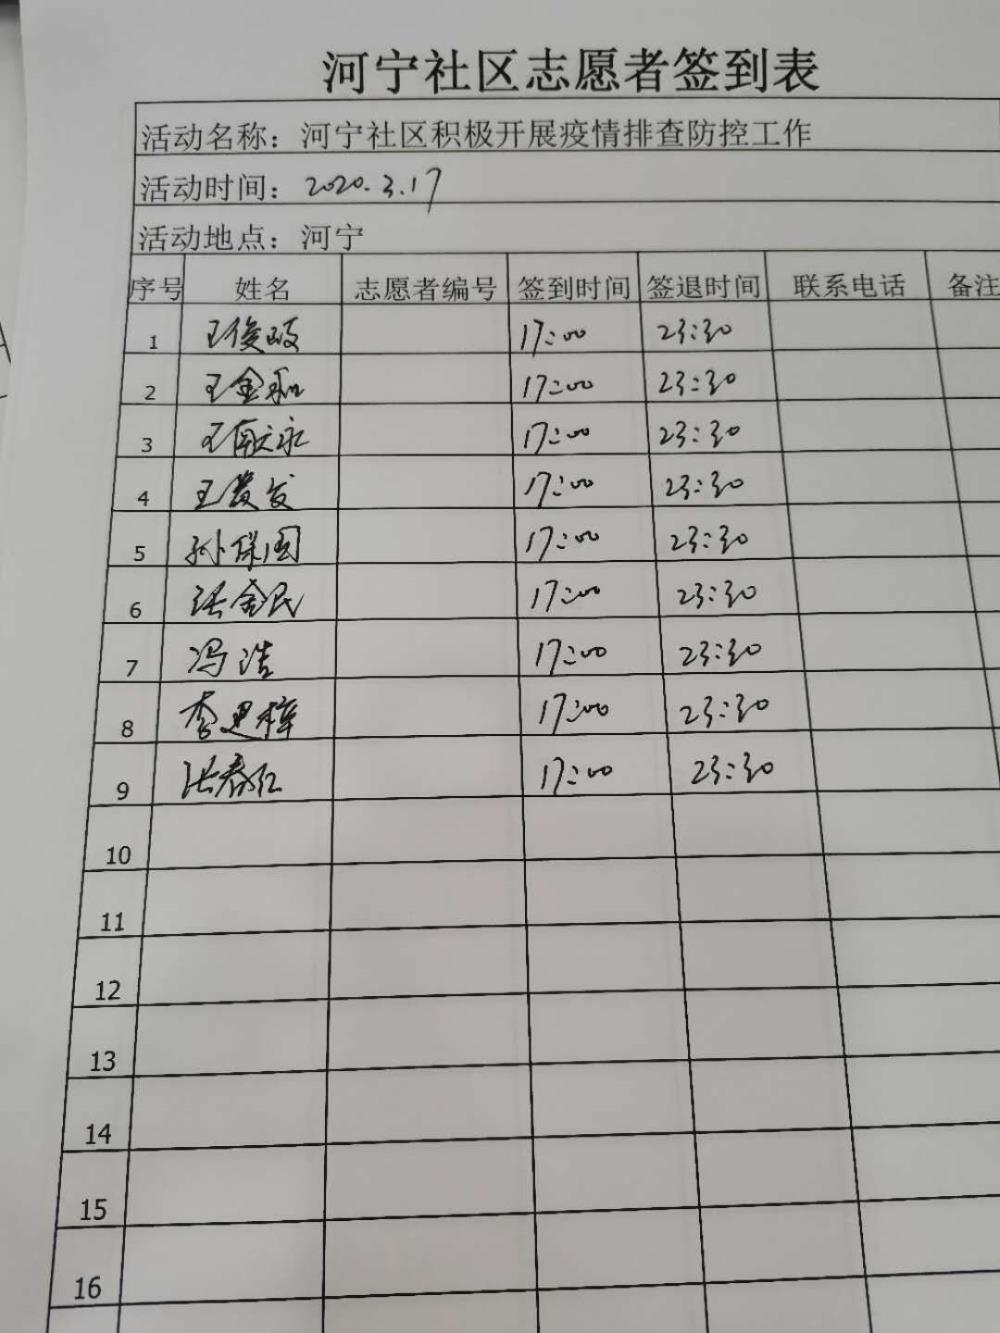 河宁社区志愿者签到表
活动名称：河宁社区积极开展疫情排查防控工作
活动时间：2020.3.17
活动地点：河宁
序号 姓名 志愿者编号 签到时间 签退时间 联系电话 备注
1 王俊岐 17:00 23:30
2 王金和 17:00 23:30
3 王献永 17:00 23:30
4 王发 17:00 23:30
5 孙保国 17:00 23:30
6 张金民 17:00 23:30
7 冯浩 17:00 23:30
8 李思梓 17:00 23:30
9 张春红 17:00 23:30
10
11
12
13
14
15
16